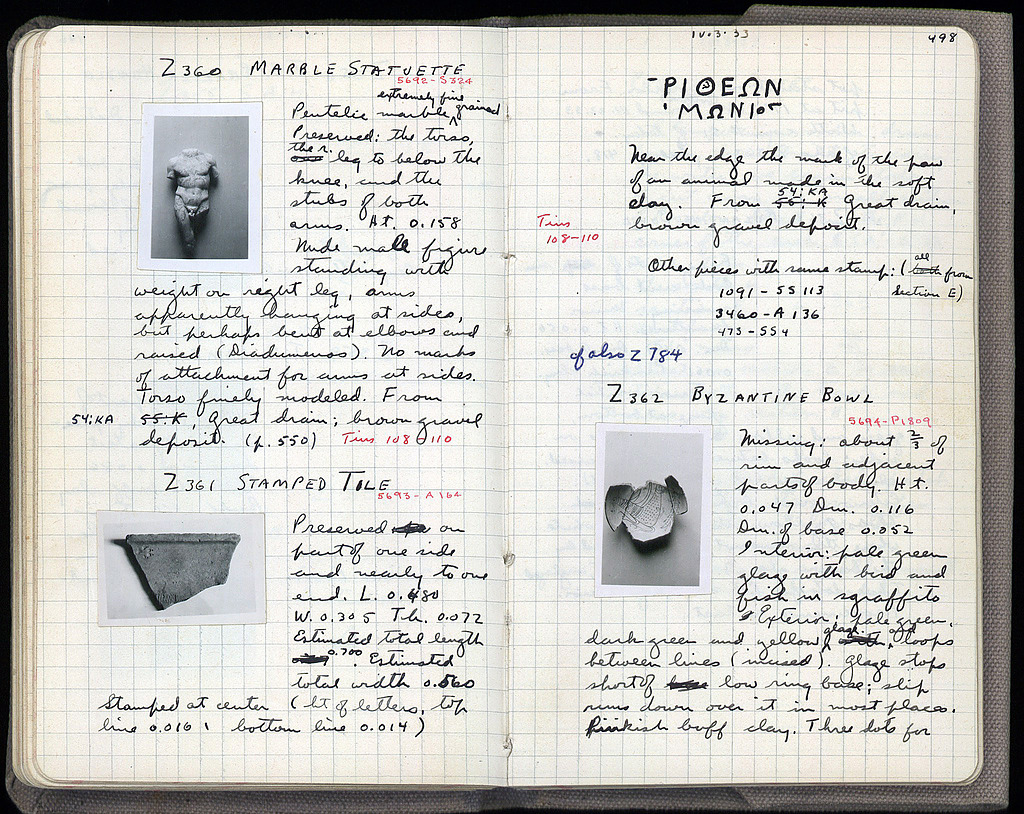 Z360 MARBLE STATUETTE
5692-S324
extremely fine
Pentelic marble, grained
Preserved: the torso,
the r.
leg to below the
knee, and the
stubs of both
arms. Ht. 0.158
Nude male figure
standing with
weight on right leg, arms
apparently hanging at sides,
but perhaps bent at elbows and
raised (Diadumenos). No marks
of attachment for arms at sides.
Torso finely modeled. From
54:KA 55:K, Great drain; brown gravel
deposit. (p. 550) Tins 108-110
Z361 STAMPED TILE
5693-A164
Preserved on
part of one side
and nearly to one
end. L. 0.480
W. 0.305 Th. 0.072
Estimated total length
0.700. Estimated
total width 0.560
Stamped at center (ht of letters, top
line 0.016, bottom line 0.014)
IV.3.33
498
ΡΙΘΕΩΝ
ΜΩΝΙΟ
Near the edge the mark of the paw
of an animal made in the soft
54:KA
clay. From 55:K Great drain,
brown gravel deposit.
Tins
108-110
Other pieces with same stamp: (both from
all
Section E)
1091-SS 113
3460-A 136
473-SS4
cf also Z 784
Z362 BYZANTINE BOWL
5694-P1809
Missing: about 2/3 of
rim and adjacent
parts of body. Ht.
0.047 Dm. 0.116
Dm. of base 0.052
Interior: pale green
glaze with bird and
fish in sgraffito
Exterior: pale green,
glaze, and
dark green and yellow with loops
between lines (incised). Glaze stops
short of low ring base; slip
runs down over it in most places.
Pinkish buff clay. Three dots for